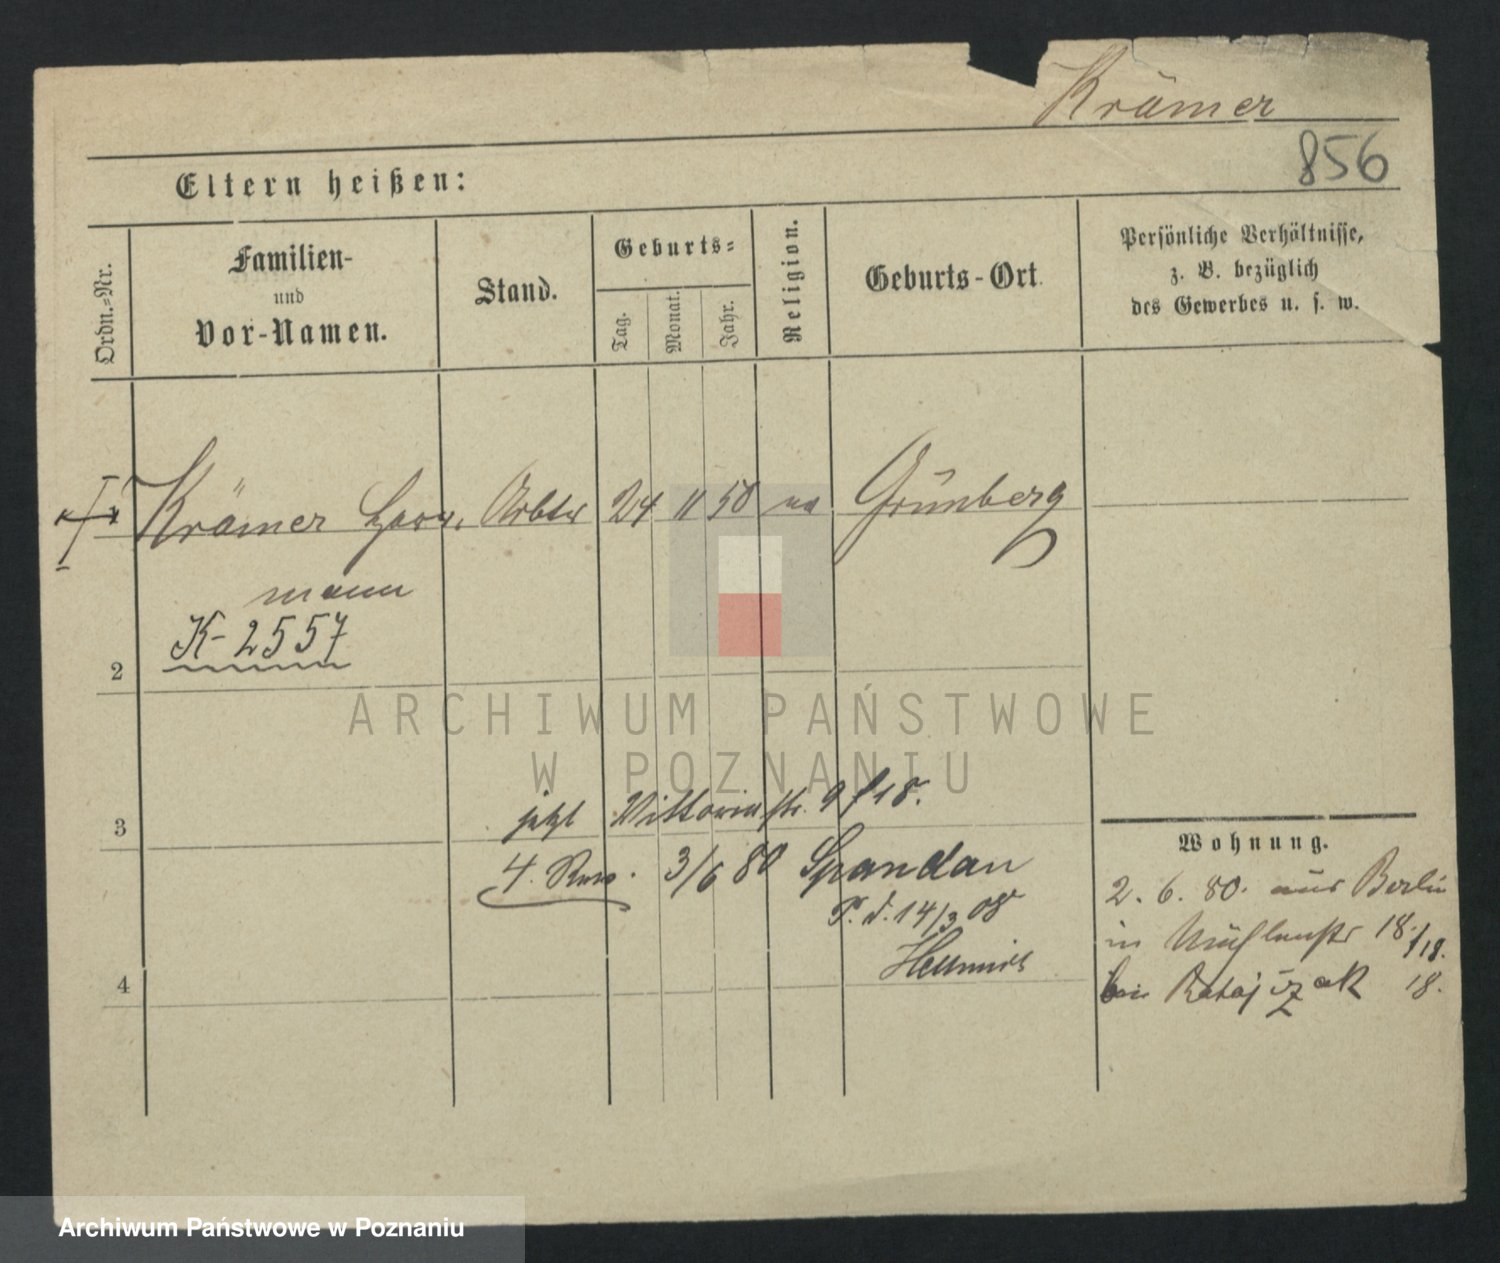 Krämer
856
Eltern heißen:
Ordn.=Nr.
Familien-
und
Vor-Namen.
Stand.
Geburts=
Tag.
Monat.
Jahr.
Religion.
Geburts-Ort.
Persönliche Verhältnisse,
z. B. bezüglich
des Gewerbes u. s. w.
Krämer Herr, Arbtr 24 11 50 Grünberg
mann
K-2557
2
ARCHIWUM PAŃSTWOWE
W POZNANIU
jetzt Viktoriastr. 9 f 18.
3
Wohnung.
4. 3/6 80 Spandau
2. 6. 80. aus Berlin
P. d. 14/3 08
in Mühlenstr 18. f18.
bei Ratajczak 18.
4
Archiwum Państwowe w Poznaniu